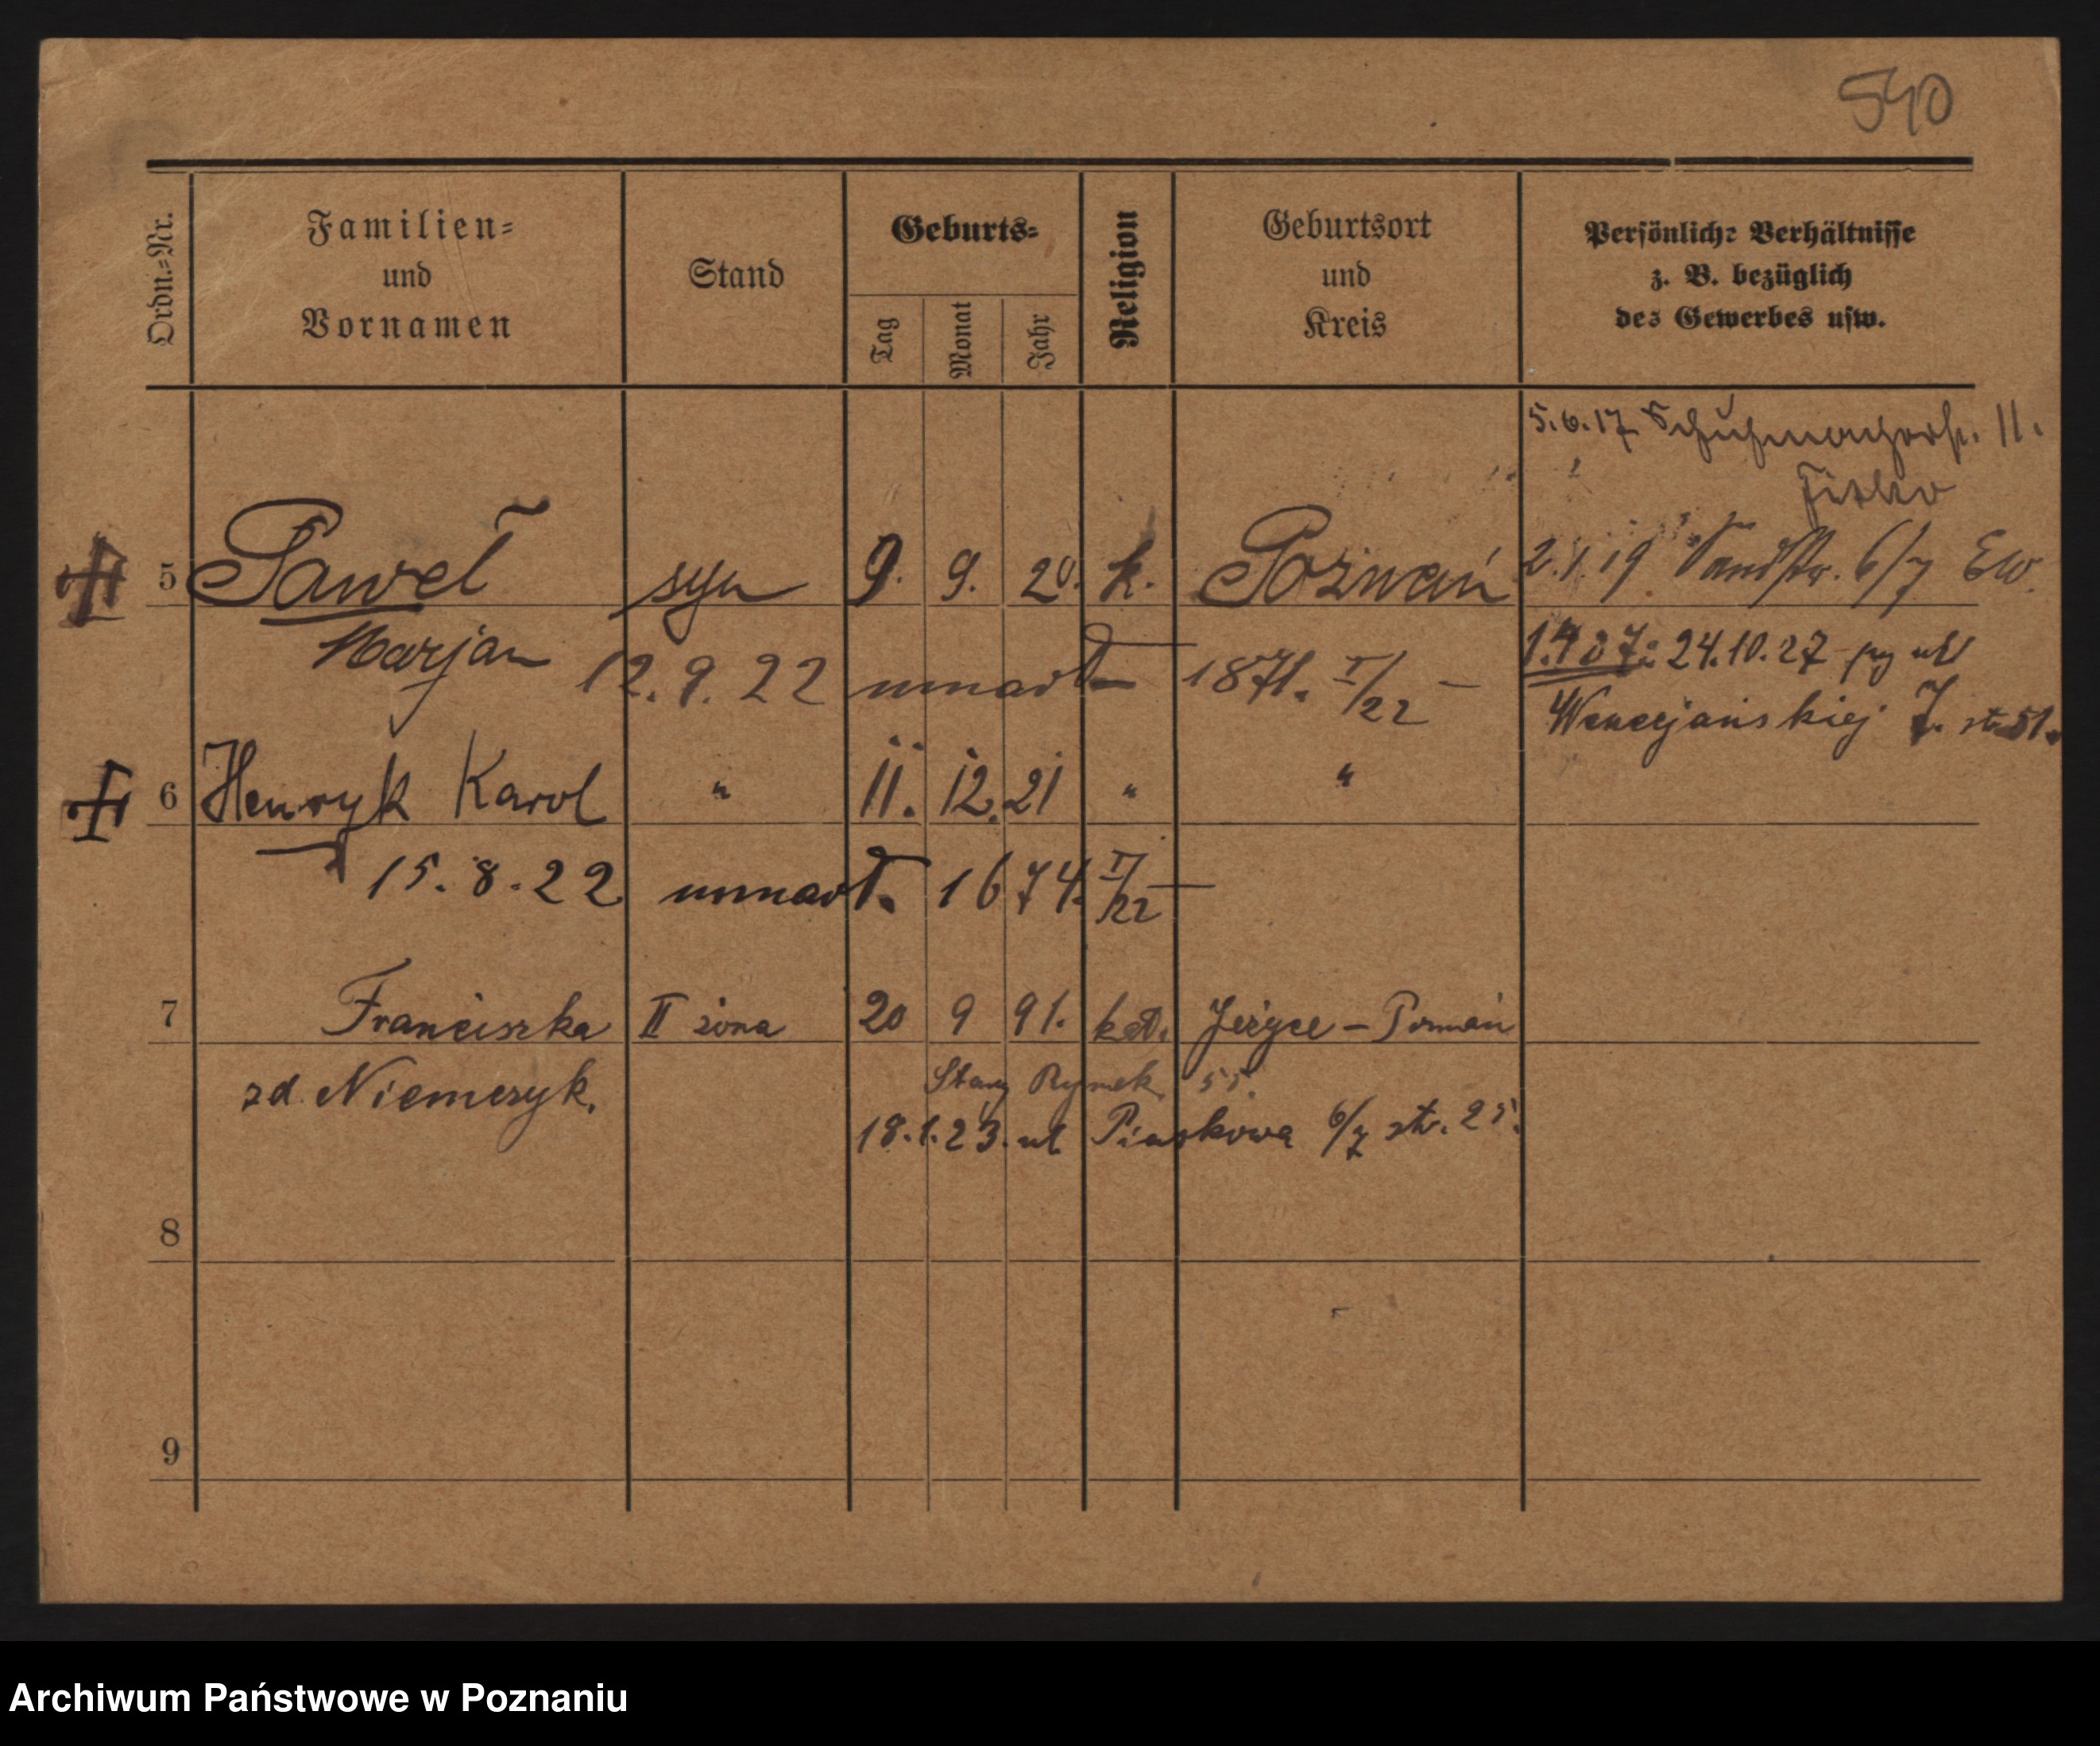 540
Ordn.-Nr.
Familien-
und
Vornamen
Stand
Geburts-
Tag Monat Jahr
Religion
Geburtsort
und
Kreis
Persönliche Verhältnisse
z. B. bezüglich
des Gewerbes usw.
5.6.17 Schuhmacherstr. 11.
5 Paweł syn 9. 9. 20. k. Poznań 2.1.19 Sandstr. 6/7 EW.
Marjan
12.9.22 umarł 1871. II/22 –
24.10.27 ul
Wenecjańskiej 7. str 51.
6 Henryk Karol " 11. 12. 21 " "
15.8.22 umarł. 1674. II/22 –
7 Franciszka II żona 20 9 91. kat. Jeżyce – Poznań
zd. Niemczyk.
Stary Rynek 55.
18.1.23. ul Piaskowa 6/7 str. 25.
8
9
Archiwum Państwowe w Poznaniu